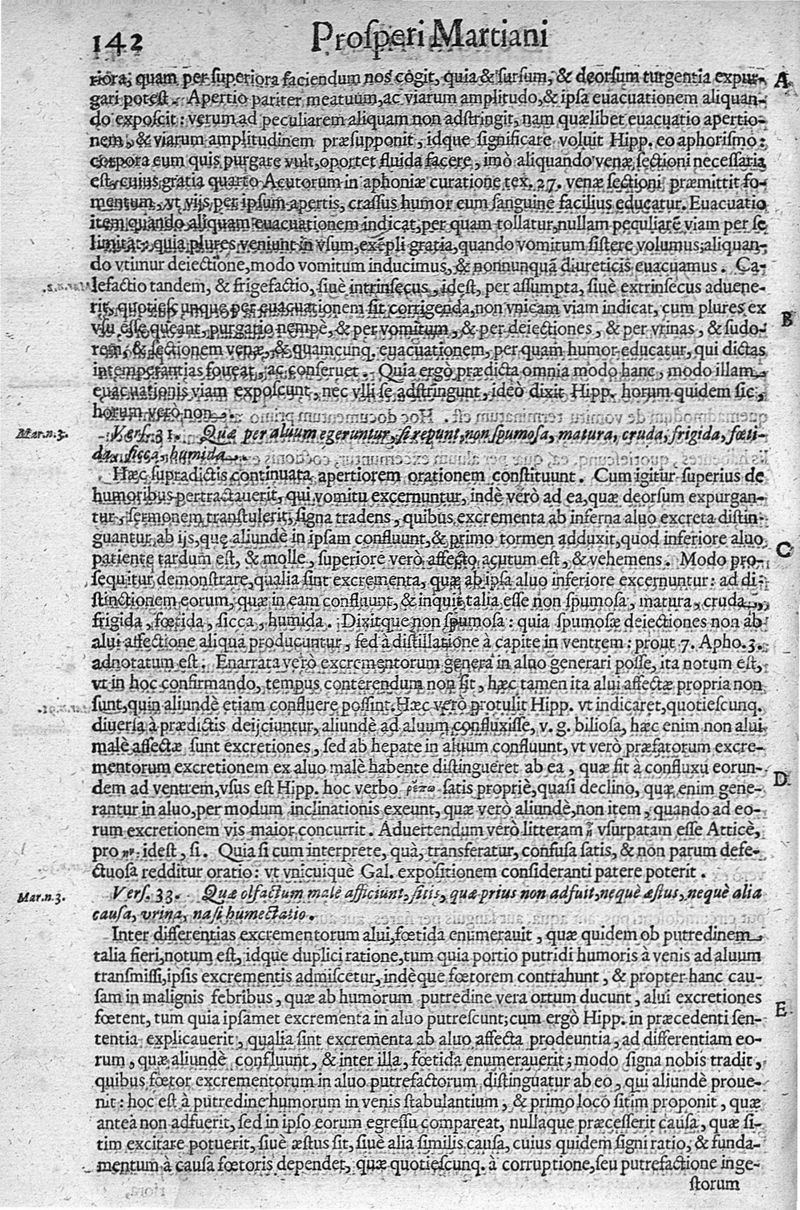 142 Prosperi Martiani
riora, quam per superiora faciendum nos cogit, quia & sursum, & deorsum turgentia expur- A
gari potest. Apertio pariter meatuum, ac viarum amplitudo, & ipsa euacuationem aliquan-
do exposcit: verum ad peculiarem aliquam non adstringit, nam quælibet euacuatio apertio-
nem, & viarum amplitudinem præsupponit, idque significare voluit Hipp. eo aphorismo:
corpora cum quis purgare vult, oportet fluida facere, imò aliquando venæ sectioni necessaria
est, cuius gratia quarto Acutorum in aphoniæ curatione tex. 27. venæ sectioni præmittit fo-
mentum, vt vijs per ipsum apertis, crassus humor cum sanguine facilius educatur. Euacuatio
item quando aliquam euacuationem indicat, per quam tollatur, nullam peculiarē viam per se
limitat, quia plures veniunt in vsum, exēpli gratia, quando vomitum sistere volumus, aliquan-
do vtimur deiectione, modo vomitum inducimus, & nonnunquā diureticis euacuamus. Ca-
lefactio tandem, & frigefactio, siuè intrinsecus, idest, per assumpta, siuè extrinsecus aduene-
rit, quotiescunque per euacuationem sit corrigenda, non vnicam viam indicat, cum plures ex
vsu esse queant, purgatio nempè, & per vomitum, & per deiectiones, & per vrinas, & sudo- B
rem, & sectionem venæ, & quamcunq. euacuationem, per quam humor educatur, qui dictas
intemperantias foueat, ac conseruet. Quia ergò prædicta omnia modo hanc, modo illam
euacuationis viam exposcunt, nec vlli se adstringunt, ideò dixit Hipp. horum quidem sic,
horum verò non.
Mar.n.3. Vers. 31. Quæ per aluum egeruntur, si repunt, non spumosa, matura, cruda, frigida, fœti-
da, sicca, humida.
Hæc supradictis continuata apertiorem orationem constituunt. Cum igitur superius de
humoribus pertractauerit, qui vomitu excernuntur, indè verò ad ea, quæ deorsum expurgan-
tur, sermonem transtulerit, signa tradens, quibus excrementa ab inferna aluo excreta distin-
guantur, ab ijs, quę aliundè in ipsam confluunt, & primo tormen adduxit, quod inferiore aluo
patiente tardum est, & molle, superiore verò affecto acutum est, & vehemens. Modo pro- C
sequitur demonstrare, qualia sint excrementa, quæ ab ipsa aluo inferiore excernuntur: ad di-
stinctionem eorum, quæ in eam confluunt, & inquit talia esse non spumosa, matura, cruda,
frigida, fœtida, sicca, humida. Dixitque non spumosa: quia spumosæ deiectiones non ab
alui affectione aliqua producuntur, sed à distillatione à capite in ventrem: prout 7. Apho. 3.
adnotatum est. Enarrata verò excrementorum genera in aluo generari posse, ita notum est,
vt in hoc confirmando, tempus conterendum non sit, hæc tamen ita alui affectæ propria non
sunt, quin aliundè etiam confluere possint. Hæc verò protulit Hipp. vt indicaret, quotiescunq.
diuersa à prædictis deijciuntur, aliundè ad aluum confluxisse, v. g. biliosa, hæc enim non alui
malè affectæ sunt excretiones, sed ab hepate in aluum confluunt, vt verò præfatorum excre-
mentorum excretionem ex aluo malè habente distingueret ab ea, quæ fit à confluxu eorun- D
dem ad ventrem, vsus est Hipp. hoc verbo satis propriè, quasi declino, quæ enim gene-
rantur in aluo, per modum inclinationis exeunt, quæ verò aliundè, non item, quando ad eo-
rum excretionem vis maior concurrit. Aduertendum verò litteram vsurpatam esse Atticè,
pro idest, si. Quia si cum interprete, quà, transferatur, confusa satis, & non parum defe-
ctuosa redditur oratio: vt vnicuique Gal. expositionem consideranti patere poterit.
Mar.n.3. Vers. 33. Quæ olfactum malè afficiunt, sitis, quæ prius non adfuit, nequè æstus, nequè alia
causa, vrina, nasi humectatio.
Inter differentias excrementorum alui, fœtida enumerauit, quæ quidem ob putredinem
talia fieri, notum est, idque duplici ratione, tum quia portio putridi humoris à venis ad aluum
transmissi, ipsis excrementis admiscetur, indèque fœtorem contrahunt, & propter hanc cau-
sam in malignis febribus, quæ ab humorum putredine vera ortum ducunt, alui excretiones
fœtent, tum quia ipsamet excrementa in aluo putrescunt; cum ergò Hipp. in præcedenti sen- E
tentia explicauerit, qualia sint excrementa ab aluo affecta prodeuntia, ad differentiam eo-
rum, quæ aliundè confluunt, & inter illa, fœtida enumerauerit; modo signa nobis tradit,
quibus fœtor excrementorum in aluo putrefactorum distinguatur ab eo, qui aliundè proue-
nit: hoc est à putredine humorum in venis stabulantium, & primo loco sitim proponit, quæ
anteà non adfuerit, sed in ipso eorum egressu compareat, nullaque præcesserit causa, quæ si-
tim excitare potuerit, siuè æstus sit, siuè alia similis causa, cuius quidem signi ratio, & funda-
mentum à causa fœtoris dependet, quæ quotiescunq. à corruptione, seu putrefactione inge-
storum